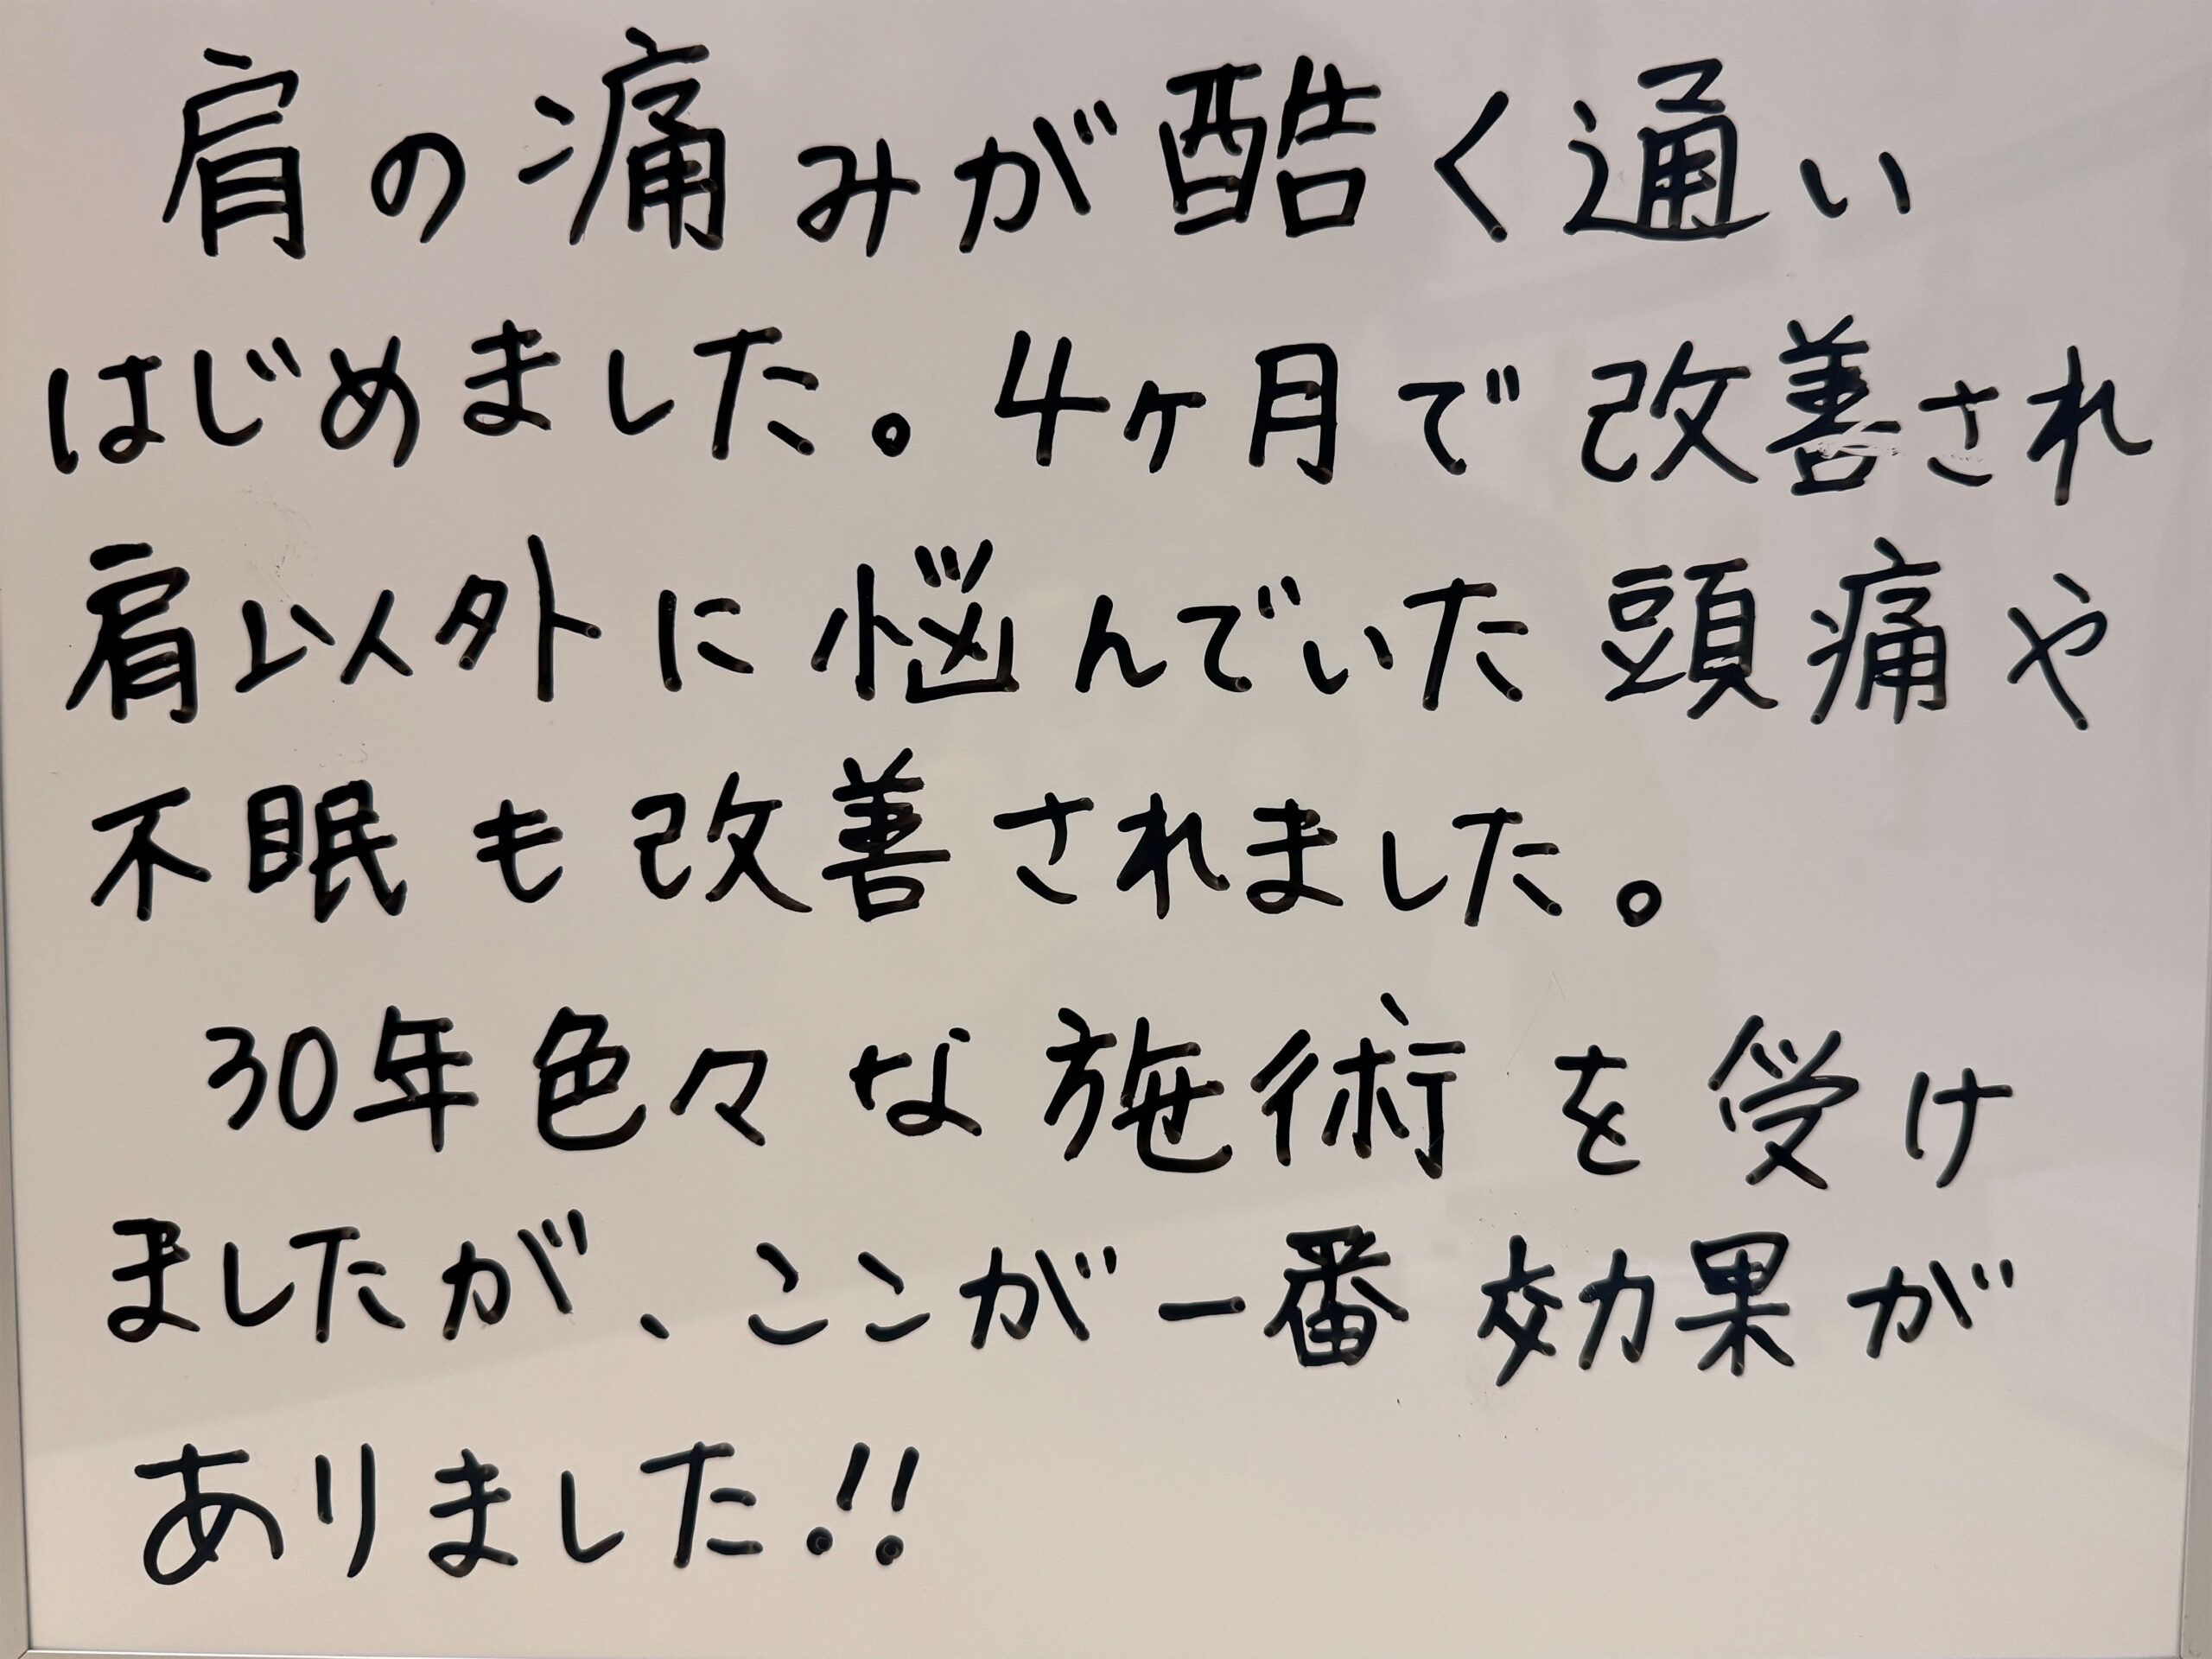 肩の痛みが酷く通い
はじめました。4ヶ月で改善され
肩以外に悩んでいた頭痛や
不眠も改善されました。
30年色々な施術を受け
ましたが、ここが一番効果が
ありました!!